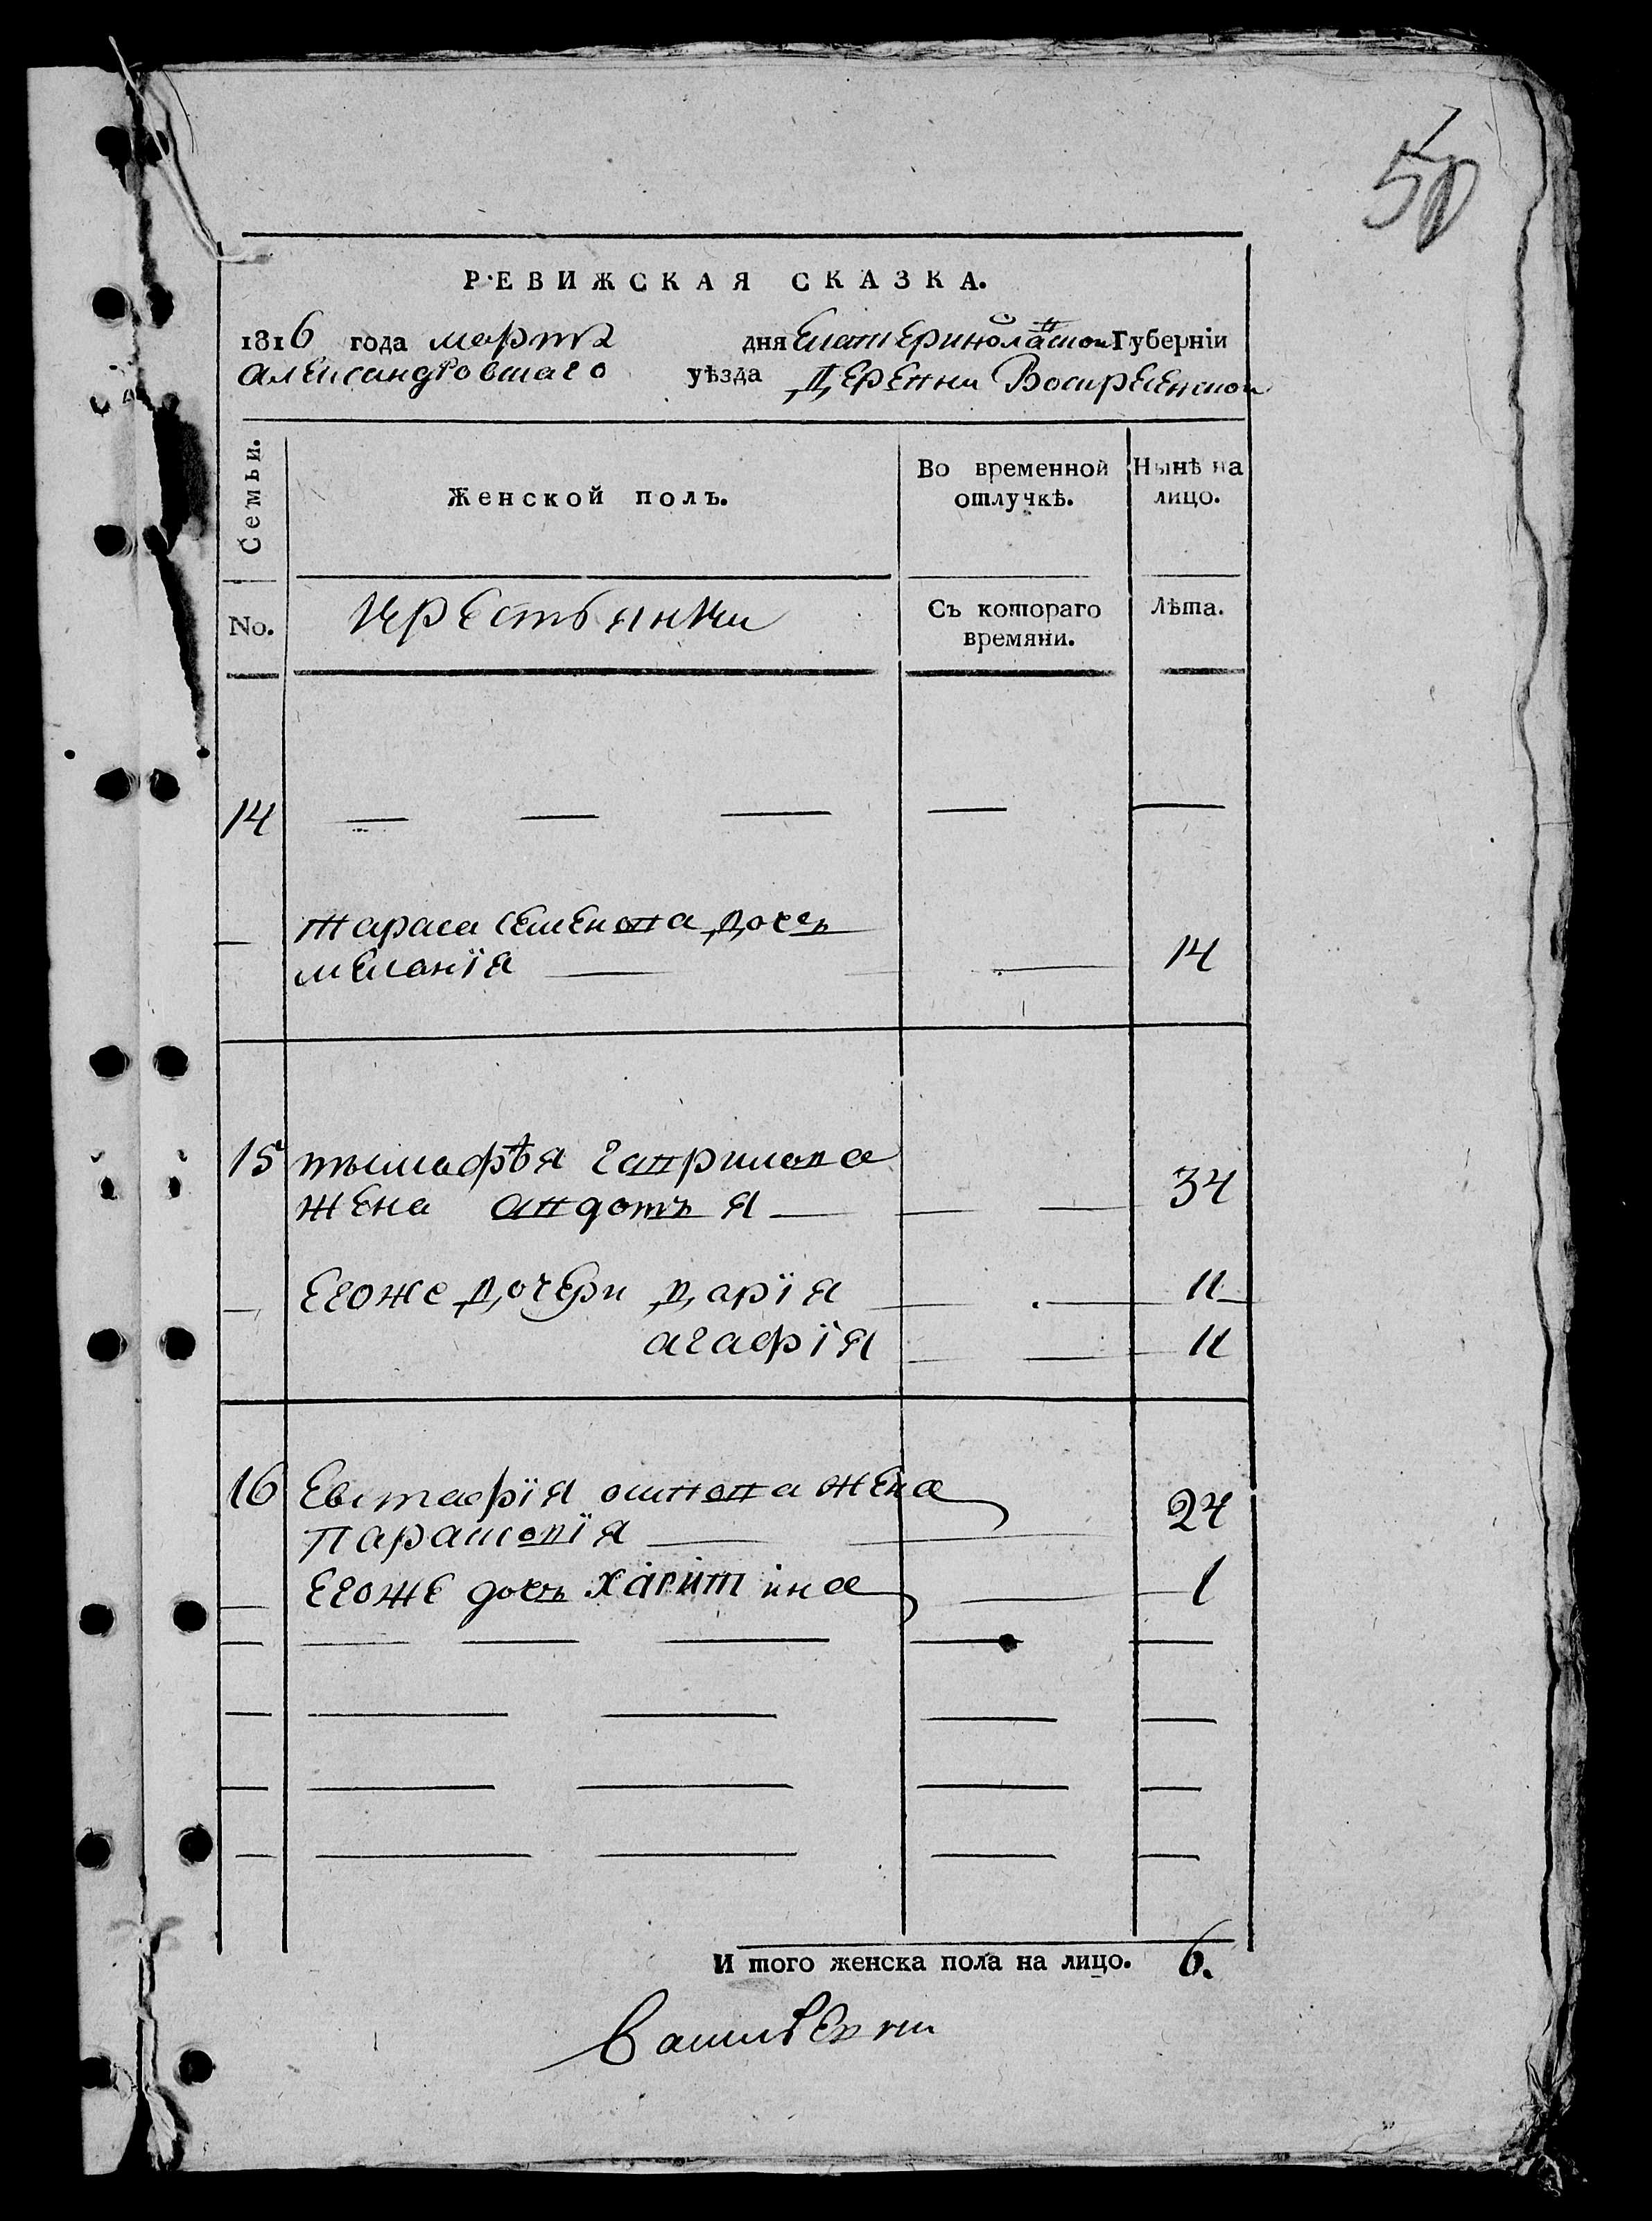 50
РЕВИЖСКАЯ СКАЗКА.
1816 года марта дня Екатеринославской Губерніи
александровскаго уѣзда деревни Воскресенской
Семьи.
Женской полъ.
Во временной отлучкѣ.
Нынѣ на лицо.
No.
крестьянки
Съ котораго времяни.
Лѣта.
14 — — — — —
— тараса семенова дочь
меланія — — 14
15 тимофѣя гаврилова
жена авдотья — — — 34
— егоже дочери дарія — — 11
агафія — — 11
16 Евстафія осипова жена
парасковія — — 24
— егоже дочь харитина — 1
— — — — — —
— — — — —
— — — — —
— — — — —
И того женска пола на лицо. 6.